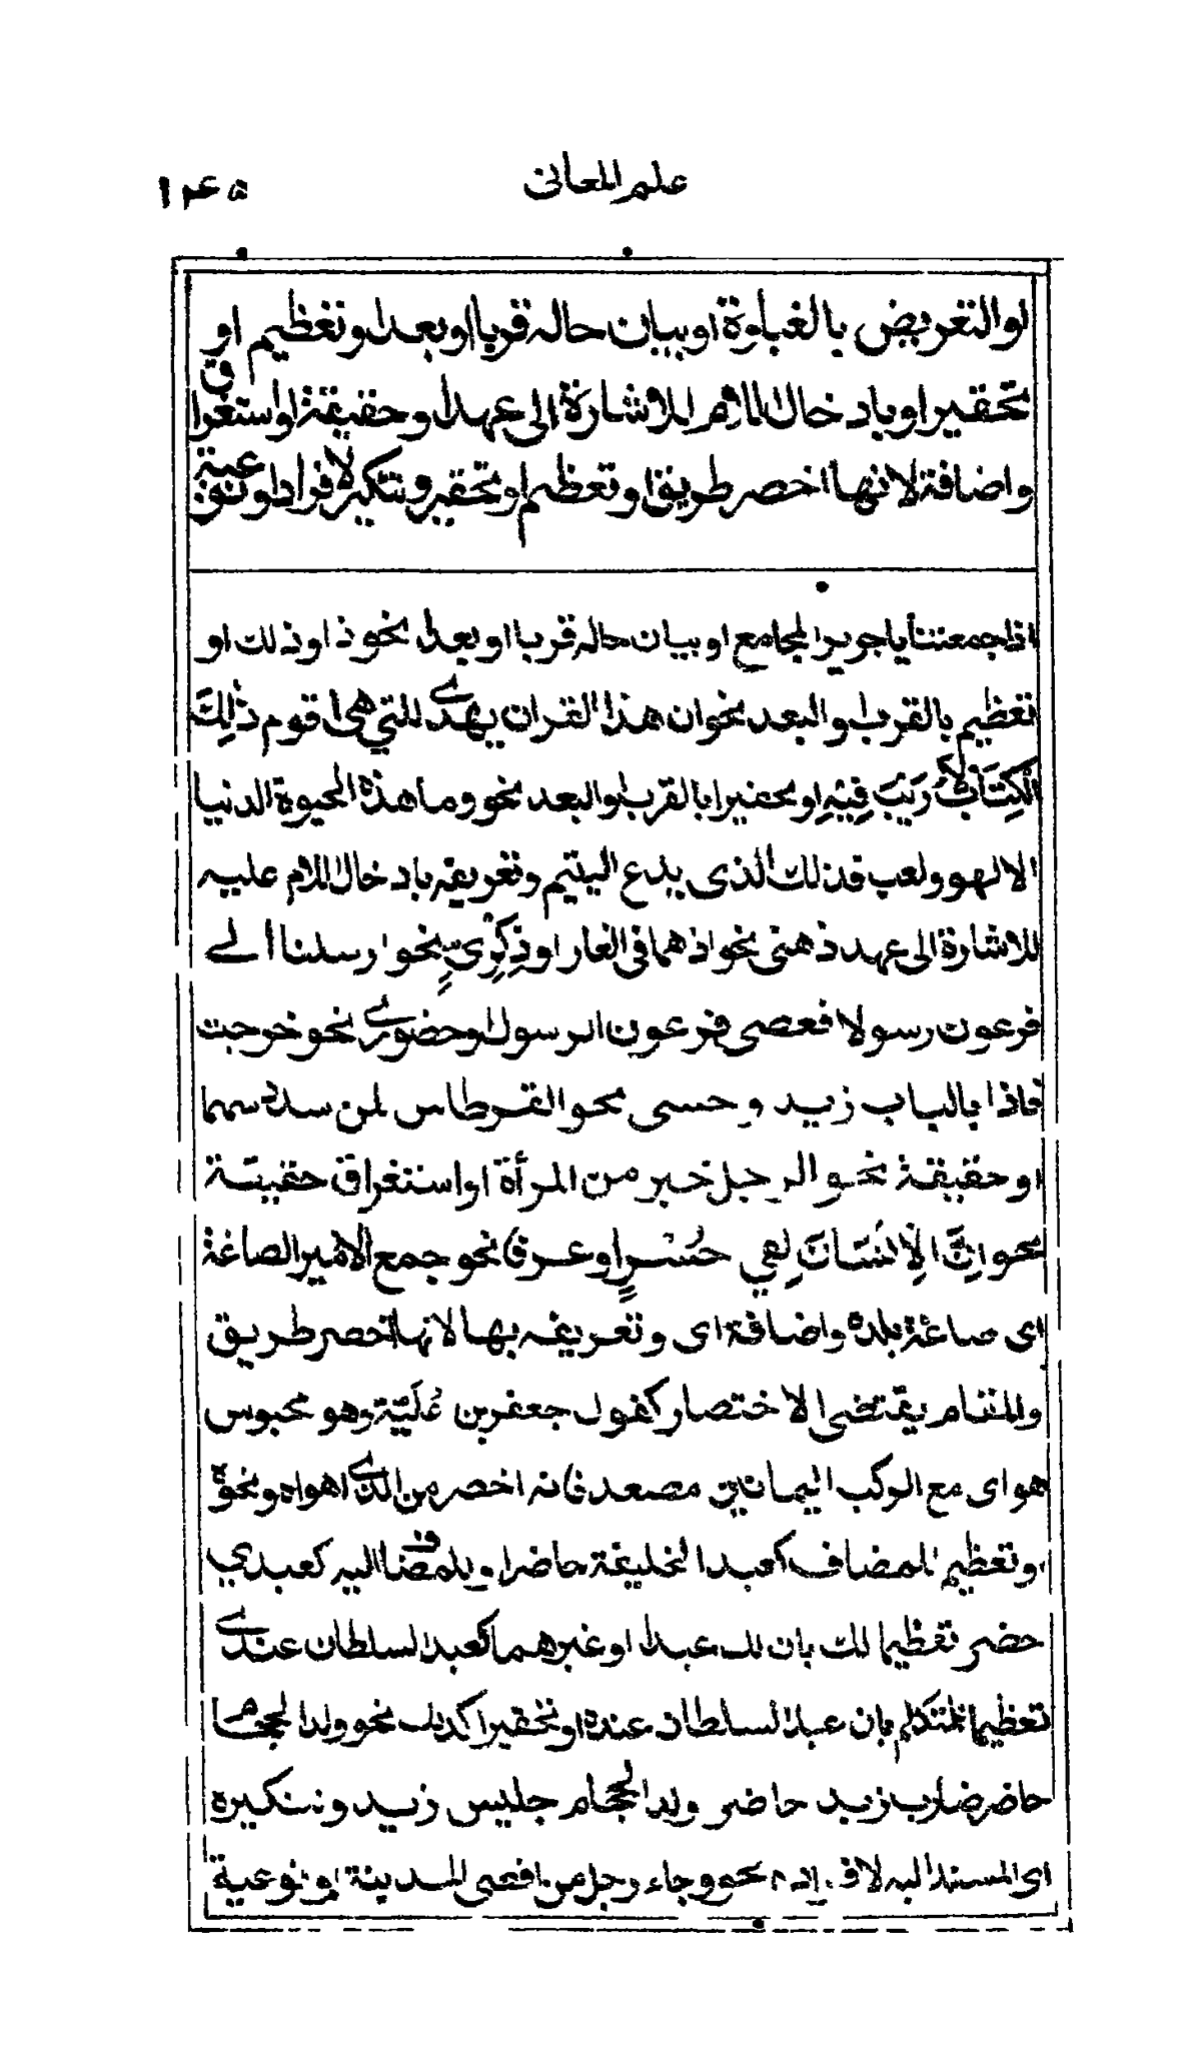 علم المعانى ١٢٤٥
او التعريض بالغباوة او بيان حاله قربا او بعدا وتعظيم او
تحقير او بادخال اللام للاشارة الى عهد او حقيقة او استغراق
واضافة لانها اخصر طريق او تعظيم او تحقير وتنكير لافراد او نوعية
اذا جمعتنا يا جرير المجامع او بيان حاله قربا او بعدا نحو ذا وذلك او
تعظيم بالقرب او البعد نحو ان هذا القران يهدى للتي هى اقوم ذٰلِكَ
الْكِتَابُ لَا رَيْبَ فِيْهِ او تحقيرا بالقرب او البعد نحو وما هذه الحيوة الدنيا
الا لهو ولعب فذلك الذى يدع اليتيم وتعريفه بادخال اللام عليه
للاشارة الى عهد ذهنى نحو اذ هما فى الغار او ذِكْرِىٍّ نحو ارسلنا الے
فرعون رسولا فعصى فرعون الرسول او حضورى نحو خرجت
فاذا بالباب زيد وحسى نحو القرطاس لمن سدد سهما
او حقيقة نحو الرجل خير من المرأة او استغراق حقيقة
نحو اِنَّ الْاِنْسَانَ لَفِي خُسْرٍ او عرفا نحو جمع الامير الصاغة
اى صاغة بلده واضافة اى وتعريفه بها لانها اخصر طريق
والمقام يقتضى الاختصار كقول جعفر بن عُلَيَّة وهو محبوس
هواى مع الركب اليمانين مصعد فانه اخصر من الذى اهواه ونحوه
او تعظيم المضاف كعبد الخليفة حاضر او للمضاف اليه كعبدي
حضر تعظيما لك بان لك عبدا او غيرهما كعبد السلطان عندى
تعظيما للمتكلم بان عبد السلطان عنده او تحقيرا كذلك نحو ولد الحجام
حاضر ضارب زيد حاضر ولد الحجام جليس زيد وتنكيره
اى المسند اليه لافراد نحو وجاء رجل من اقصى المدينة او نوعية